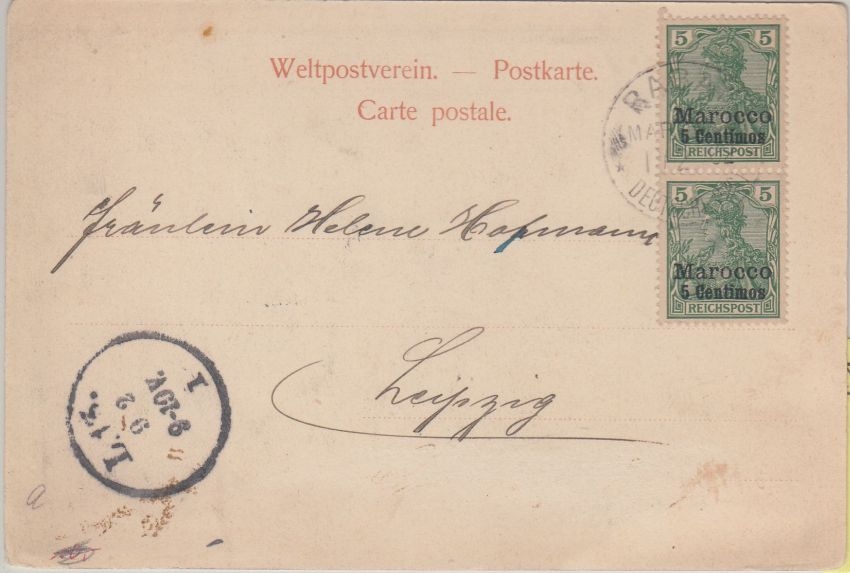 Weltpostverein. — Postkarte.
Carte postale.
5 5
Marocco
5 Centimos
REICHSPOST
5 5
Marocco
5 Centimos
REICHSPOST
Fräulein Helene Hofmann
Leipzig
L. 13.
9 2
9-10V.
I
a